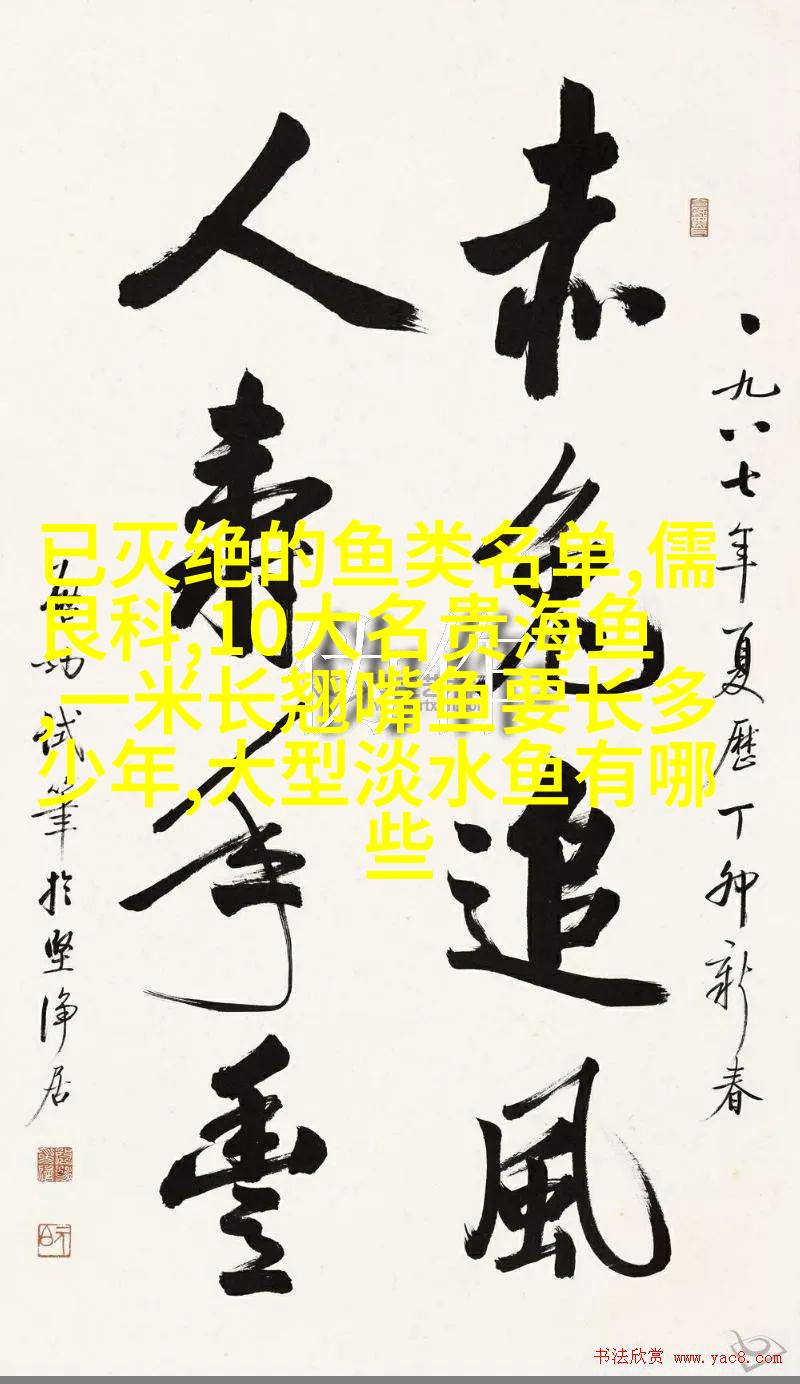 一九八七年夏历丁卯新春
赤兔追风
人寿年丰
启功试笔於坚净居
已灭绝的鱼类名单,儒
艮科,10大名贵海鱼
,一米长翘嘴鱼要长多
少年,大型淡水鱼有哪
些
书法欣赏 www.yac8.com